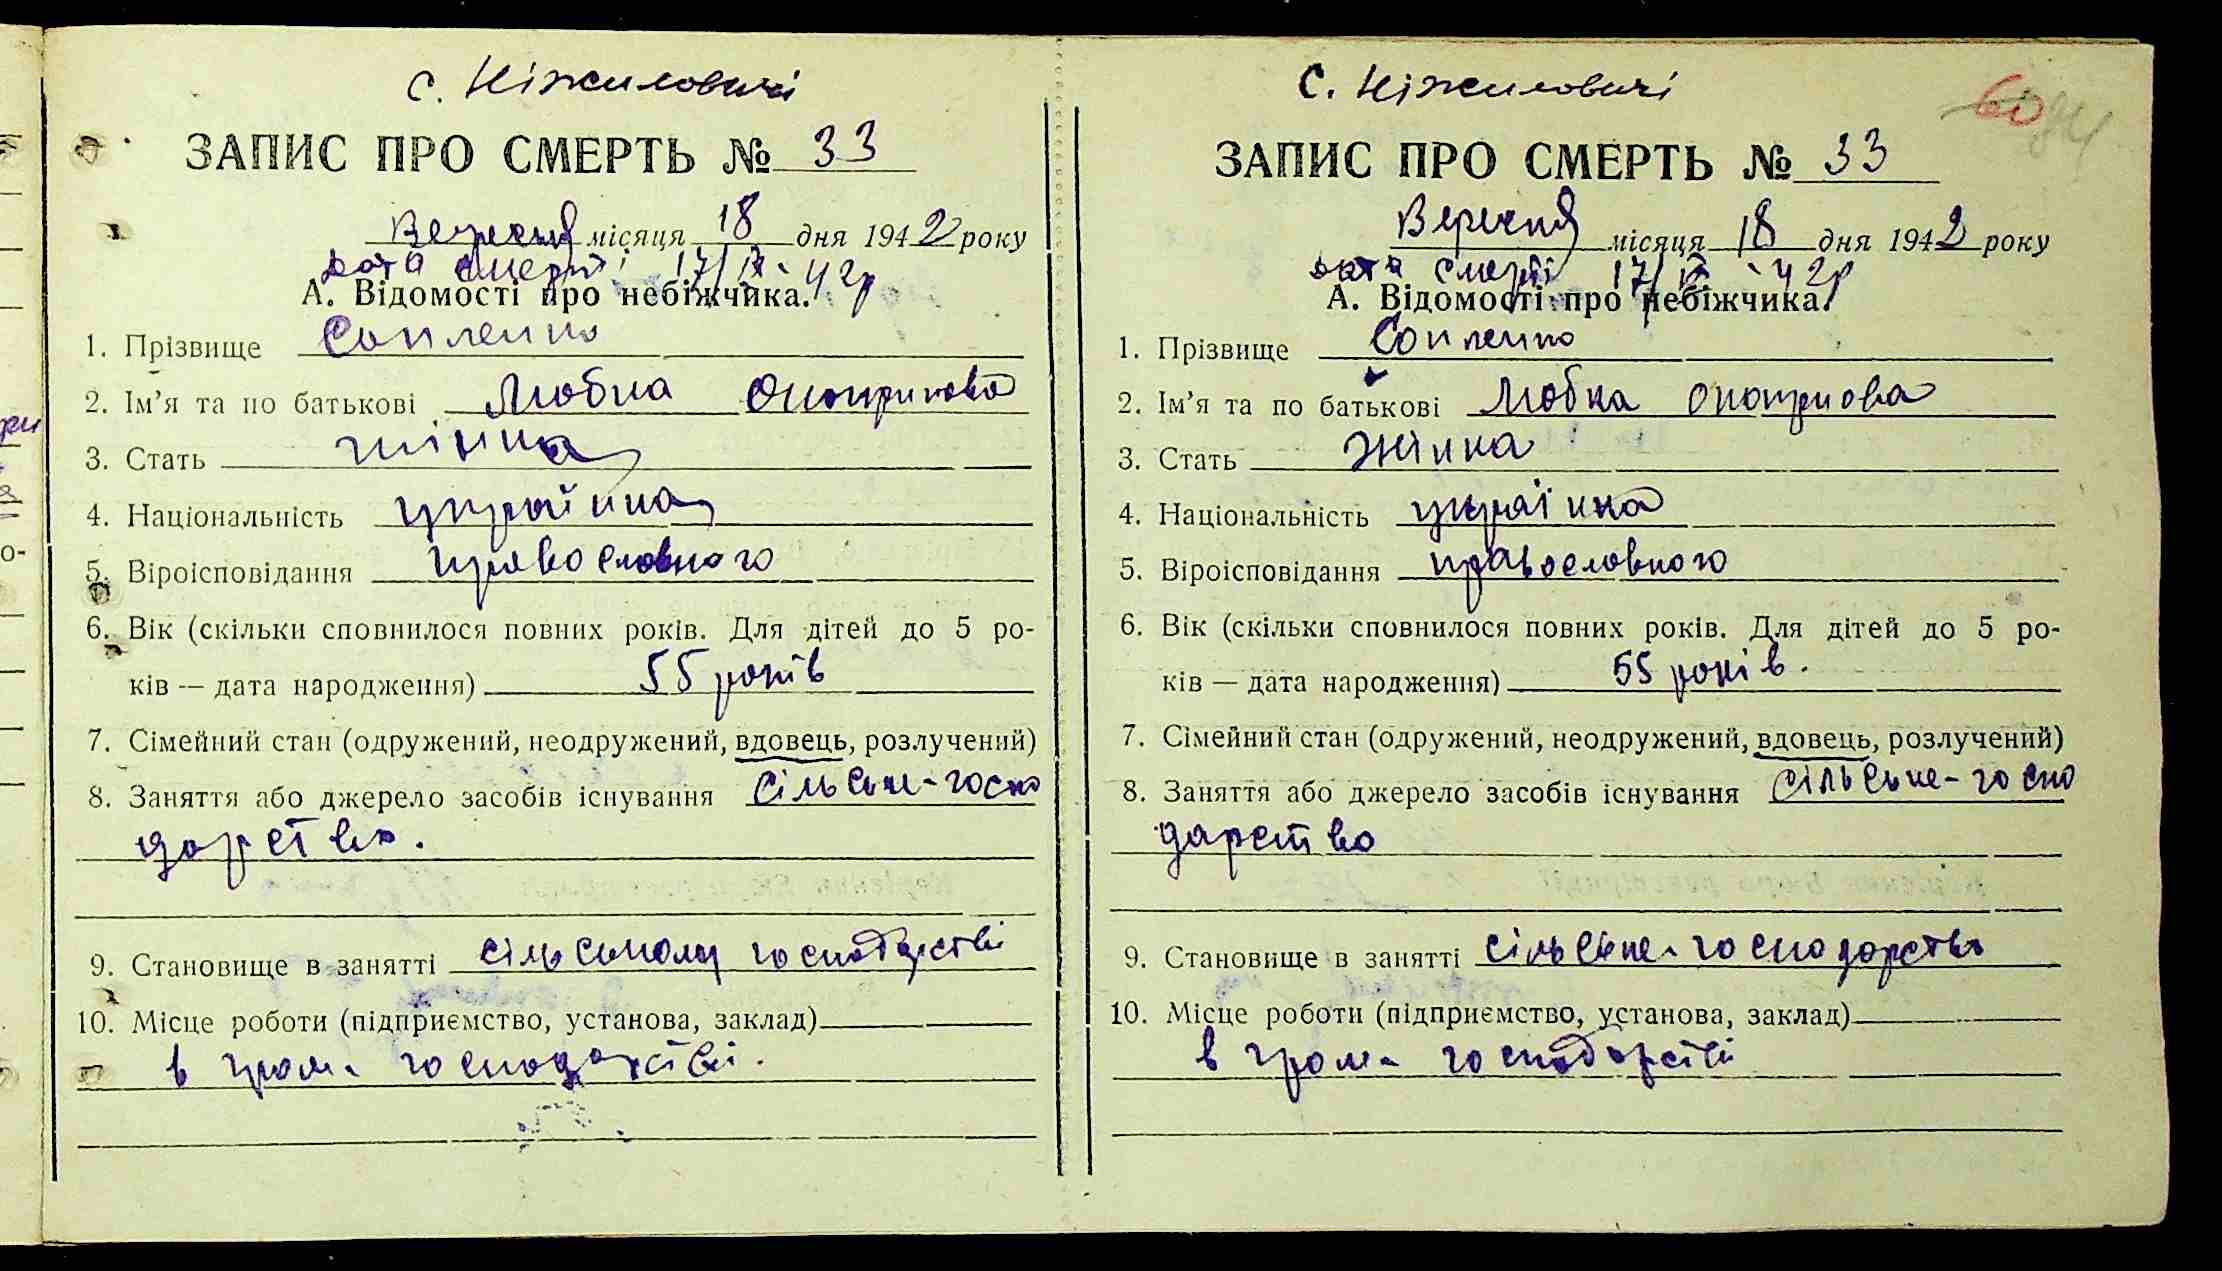 с. Ніжиловичі
ЗАПИС ПРО СМЕРТЬ № 33
Вересня місяця 18 дня 1942 року
дата смерті 17/IX-42р
А. Відомості про небіжчика.
1. Прізвище Сопленко
2. Ім'я та по батькові Любка Оноприкова
3. Стать жінка
4. Національність українка
5. Віроісповідання православного
6. Вік (скільки сповнилося повних років. Для дітей до 5 ро-
ків — дата народження) 55 років
7. Сімейний стан (одружений, неодружений, вдовець, розлучений)
8. Заняття або джерело засобів існування сільське-госпо
дарство.
9. Становище в занятті сільському господарстві
10. Місце роботи (підприємство, установа, заклад)
в гром. господарстві.
с. Ніжиловичі
60
ЗАПИС ПРО СМЕРТЬ № 33
Вересня місяця 18 дня 1942 року
дата смерті 17/IX-42р
А. Відомості про небіжчика.
1. Прізвище Сопленко
2. Ім'я та по батькові Любка Оноприова
3. Стать жінка
4. Національність українка
5. Віроісповідання православного
6. Вік (скільки сповнилося повних років. Для дітей до 5 ро-
ків — дата народження) 55 років.
7. Сімейний стан (одружений, неодружений, вдовець, розлучений)
8. Заняття або джерело засобів існування сільське-госпо
дарство
9. Становище в занятті сільське-господарство
10. Місце роботи (підприємство, установа, заклад)
в гром- господарстві